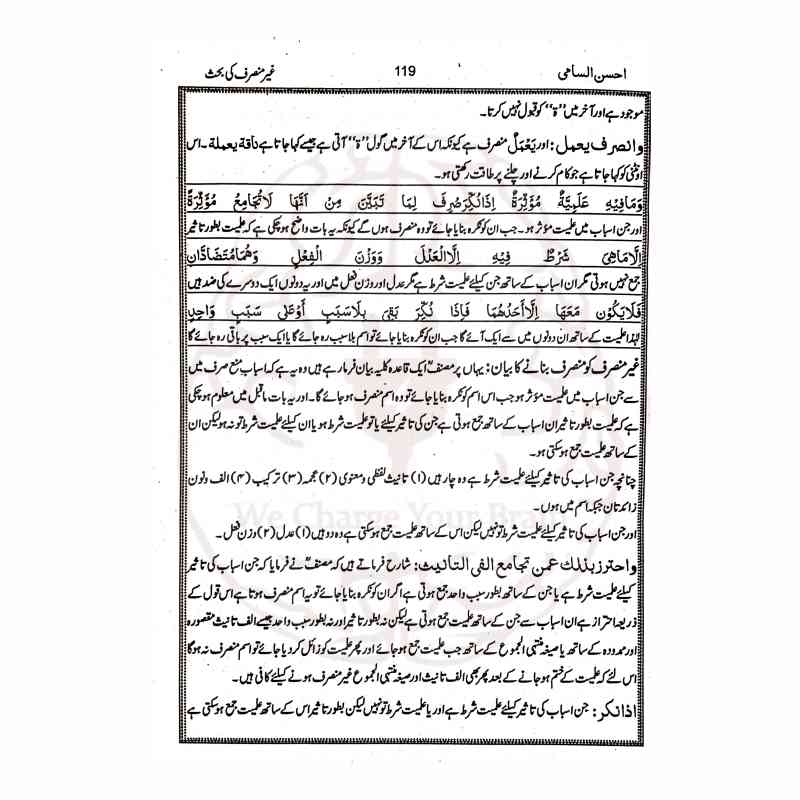 احسن السامی
119
غیر منصرف کی بحث
موجود ہے اور آخر میں ’’ۃ‘‘ کو قبول نہیں کرتا۔
وانصرف یعمل: اور یَعْمَلُ منصرف ہے کیونکہ اس کے آخر میں گول ’’ۃ‘‘ آتی ہے جیسے کہا جاتا ہے ناقة یعملة۔ اس
اونٹنی کو کہا جاتا ہے جو کام کرنے اور چلنے پر طاقت رکھتی ہو۔
وَمَافِيْهِ عَلَمِيَّةٌ مُؤَثِّرَةٌ إِذَانُكِّرَصُرِفَ لِمَا تَبَيَّنَ مِنْ أَنَّهَا لَاتُجَامِعُ مُؤَثِّرَةً
اور جن اسباب میں علمیت مؤثر ہو۔ جب ان کو نکرہ بنایا جائے تو وہ منصرف ہوں گے کیونکہ یہ بات واضح ہو چکی ہے کہ علمیت بطور تاثیر
إِلَّامَاهِيَ شَرْطٌ فِيْهِ إِلَّاالْعَدْلَ وَوَزْنَ الْفِعْلِ وَهُمَامُتَضَادَّانِ
جمع نہیں ہوتی مگر ان اسباب کے ساتھ جن کیلئے علمیت شرط ہے مگر عدل اور وزن فعل میں اور یہ دونوں ایک دوسرے کی ضد ہیں
فَلَايَكُوْنُ مَعَهَا إِلَّاأَحَدُهُمَا فَإِذَا نُكِّرَ بَقِيَ بِلَاسَبَبٍ أَوْعَلٰى سَبَبٍ وَاحِدٍ
لہٰذا علمیت کے ساتھ ان دونوں میں سے ایک آئے گا جب ان کو نکرہ بنایا جائے تو اسم بلا سبب رہ جائے گا یا ایک سبب پر باقی رہ جائے گا
غیر منصرف کو منصرف بنانے کا بیان: یہاں پر مصنفؒ ایک قاعدہ کلیہ بیان فرما رہے ہیں وہ یہ ہے کہ اسباب منع صرف میں
سے جن اسباب میں علمیت مؤثر ہو جب اس اسم کو نکرہ بنایا جائے تو وہ اسم منصرف ہو جائے گا۔ اور یہ بات ماقبل میں معلوم ہو چکی
ہے کہ علمیت بطور تاثیر ان اسباب کے ساتھ جمع ہوتی ہے جن کی تاثیر کیلئے یا تو علمیت شرط ہو یا ان کیلئے علمیت شرط تو نہ ہو لیکن ان
کے ساتھ علمیت جمع ہو سکتی ہو۔
چنانچہ جن اسباب کی تاثیر کیلئے علمیت شرط ہے وہ چار ہیں (۱) تانیث لفظی و معنوی (۲) عجمہ (۳) ترکیب (۴) الف ونون
زائدتان جبکہ اسم میں ہوں۔
اور جن اسباب کی تاثیر کیلئے علمیت شرط تو نہیں لیکن اس کے ساتھ علمیت جمع ہو سکتی ہے وہ دو ہیں (۱) عدل (۲) وزن فعل۔
We Charge Your Brain
واحترز بذلك عمن تجامع الفی التانیث: شارح فرماتے ہیں کہ مصنفؒ نے فرمایا کہ جن اسباب کی تاثیر
کیلئے علمیت شرط ہے یا جن کے ساتھ بطور سبب واحد جمع ہوتی ہے اگر ان کو نکرہ بنایا جائے تو یہ اسم منصرف ہوتا ہے اس قول کے
ذریعہ احتراز ہے ان اسباب سے جن کے ساتھ علمیت جمع ہوتی ہے لیکن نہ بطور تاثیر اور نہ بطور سبب واحد جیسے الف تانیث مقصورہ
اور ممدودہ کے ساتھ یا صیغہ منتہی الجموع کے ساتھ جب علمیت جمع ہو جائے اور پھر علمیت کو زائل کر دیا جائے تو اسم منصرف نہ ہوگا
اس لئے کہ علمیت کے ختم ہو جانے کے بعد پھر بھی الف تانیث اور صیغہ منتہی الجموع غیر منصرف ہونے کیلئے کافی ہیں۔
اذانکر: جن اسباب کی تاثیر کیلئے علمیت شرط ہے اور یا علمیت شرط تو نہیں لیکن بطور تاثیر اس کے ساتھ علمیت جمع ہو سکتی ہے